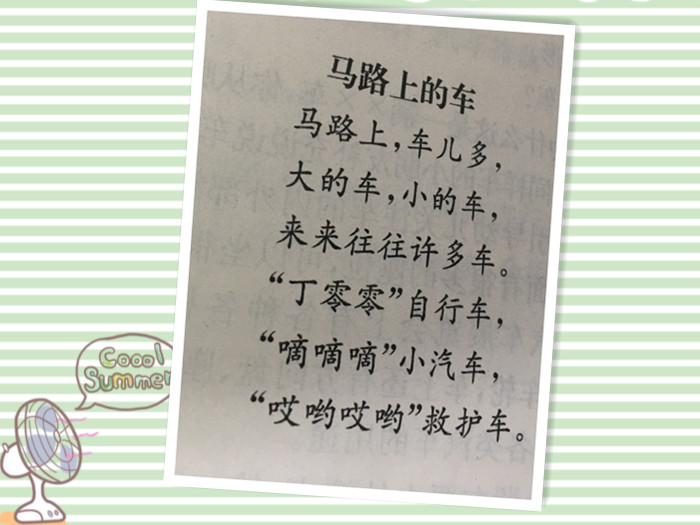 马路上的车
马路上,车儿多,
大的车,小的车,
来来往往许多车。
“丁零零”自行车,
“嘀嘀嘀”小汽车,
“哎哟哎哟”救护车。
Coool
Summer